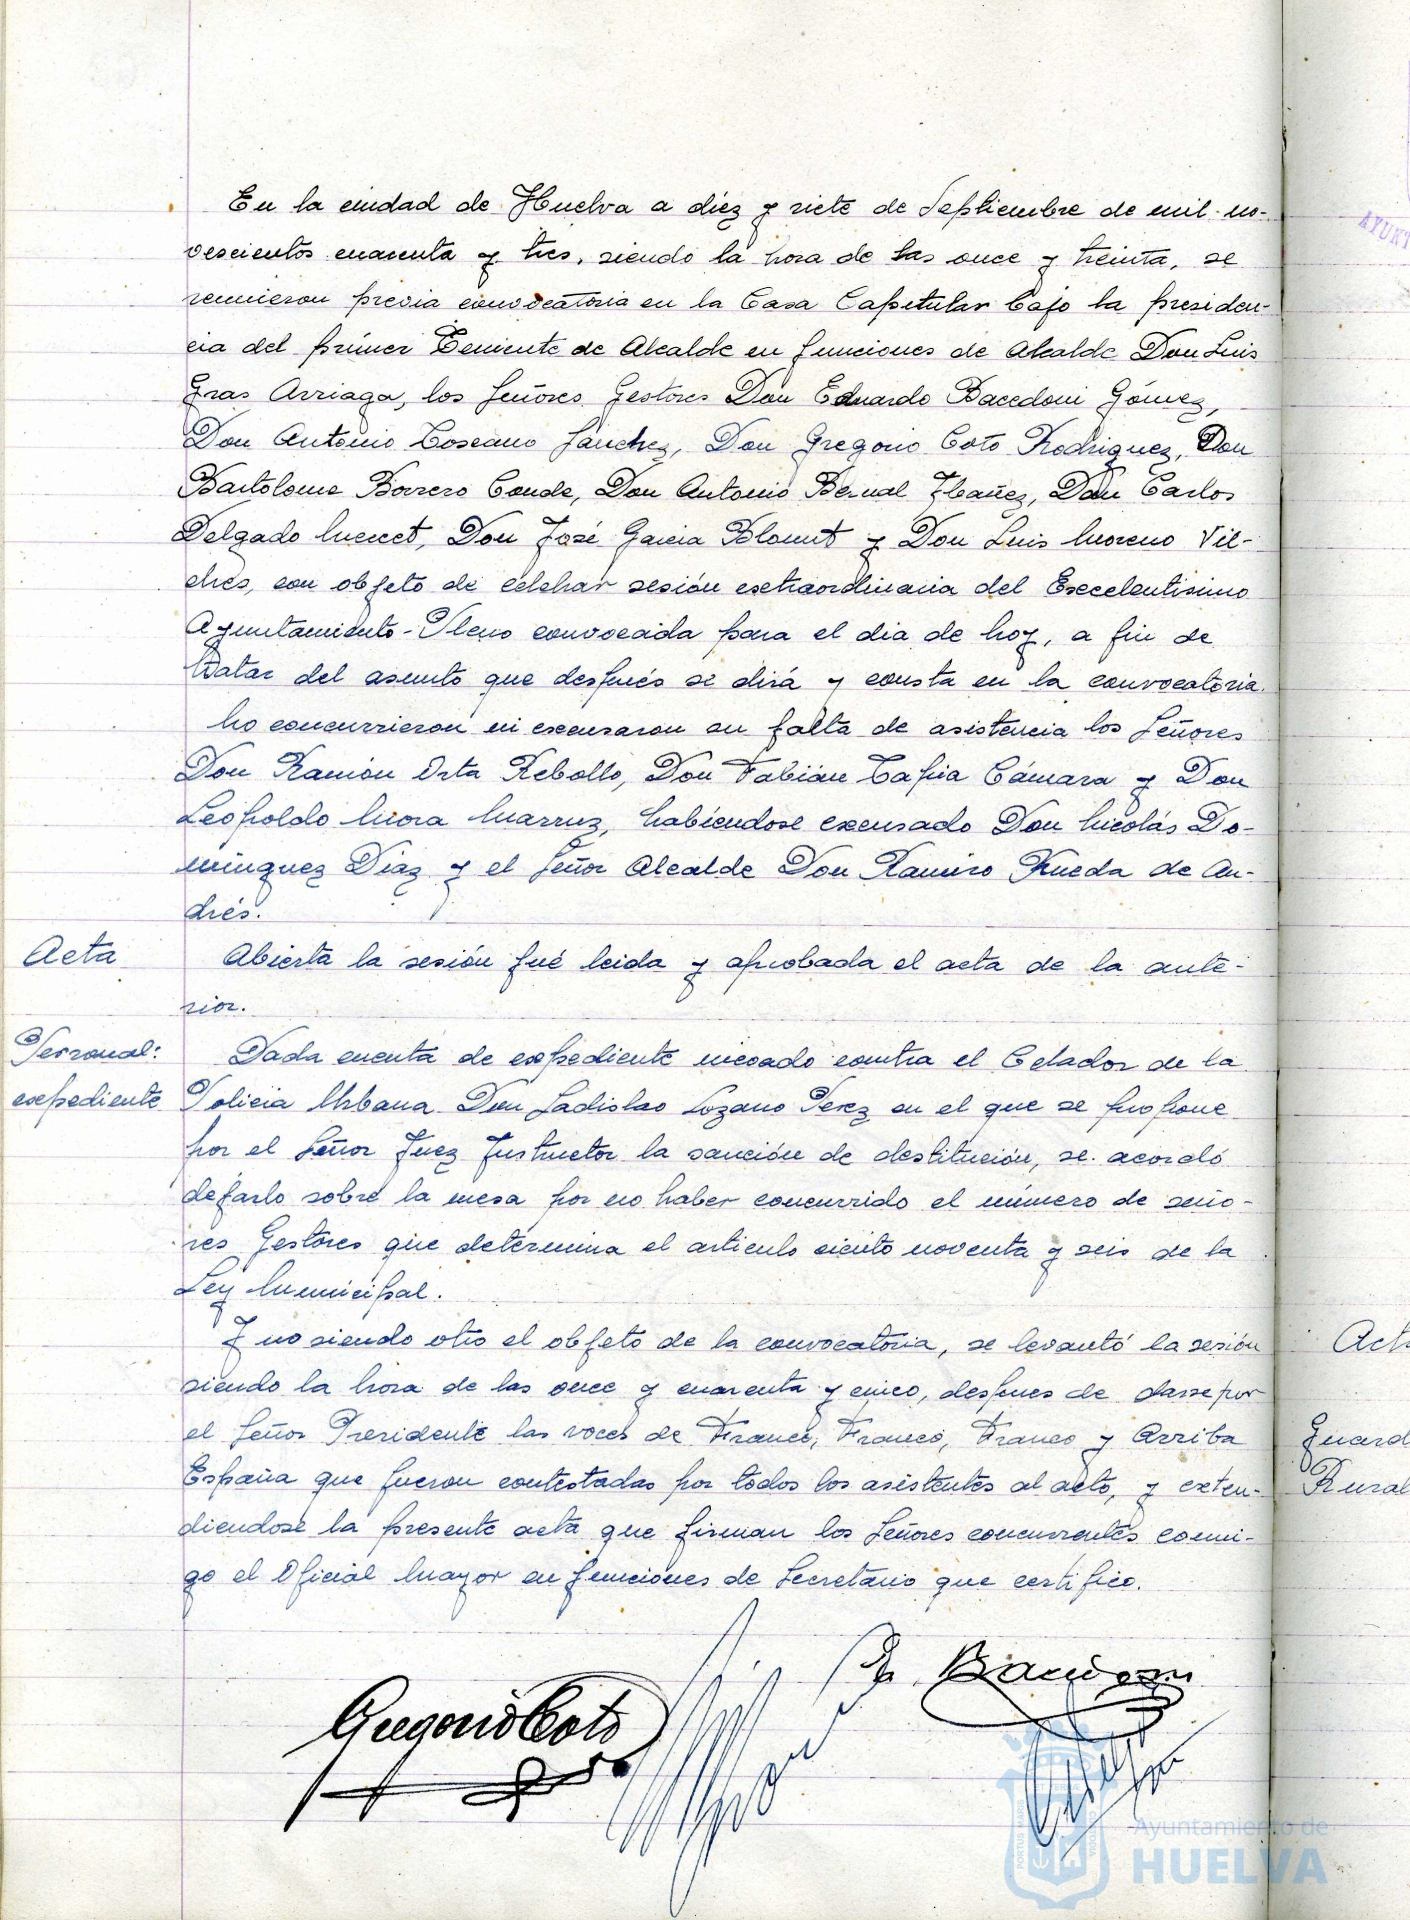 En la ciudad de Huelva a diez y siete de Septiembre de mil no-
vescientos cuarenta y tres, siendo la hora de las once y treinta, se
reunieron previa convocatoria en la Casa Capitular bajo la presiden-
cia del primer Teniente de Alcalde en funciones de Alcalde Don Luis
Gras Arriaga, los Señores Gestores Don Eduardo Bacedoni Gómez,
Don Antonio Toscano Sanchez, Don Gregorio Coto Rodriguez, Don
Bartolome Borrero Conde, Don Antonio Bernal Ibañez, Don Carlos
Delgado Mercet, Don José Garcia Blount y Don Luis Moreno Vil-
ches, con objeto de celebrar sesión extraordinaria del Excelentisimo
Ayuntamiento-Pleno convocada para el dia de hoy, a fin de
tratar del asunto que después se dirá y consta en la convocatoria.
No concurrieron ni excusaron su falta de asistencia los Señores
Don Ramón Orta Rebollo, Don Fabián Tapia Cámara y Don
Leopoldo Mora Marruz, habiéndose excusado Don Nicolás Do-
minguez Diaz y el Señor Alcalde Don Ramiro Rueda de An-
drés.
Acta
Abierta la sesión fué leida y aprobada el acta de la ante-
rior.
Personal:
expediente
Dada cuenta de expediente incoado contra el Celador de la
Policia Urbana Don Ladislao Lozano Perez en el que se propone
por el Señor Juez Instructor la sanción de destitución, se acordó
dejarlo sobre la mesa por no haber concurrido el número de seño-
res Gestores que determina el articulo ciento noventa y seis de la
Ley Municipal.
Y no siendo otro el objeto de la convocatoria, se levantó la sesión
siendo la hora de las once y cuarenta y cinco, despues de darse por
el Señor Presidente las voces de Franco, Franco, Franco y Arriba
España que fueron contestadas por todos los asistentes al acto, y exten-
diendose la presente acta que firman los Señores concurrentes conmi-
go el Oficial Mayor en funciones de Secretario que certifico.
Gregorio Coto
E. Bacedoni
Act
Guard
Rural
AYUNT
Ayuntamiento de
HUELVA